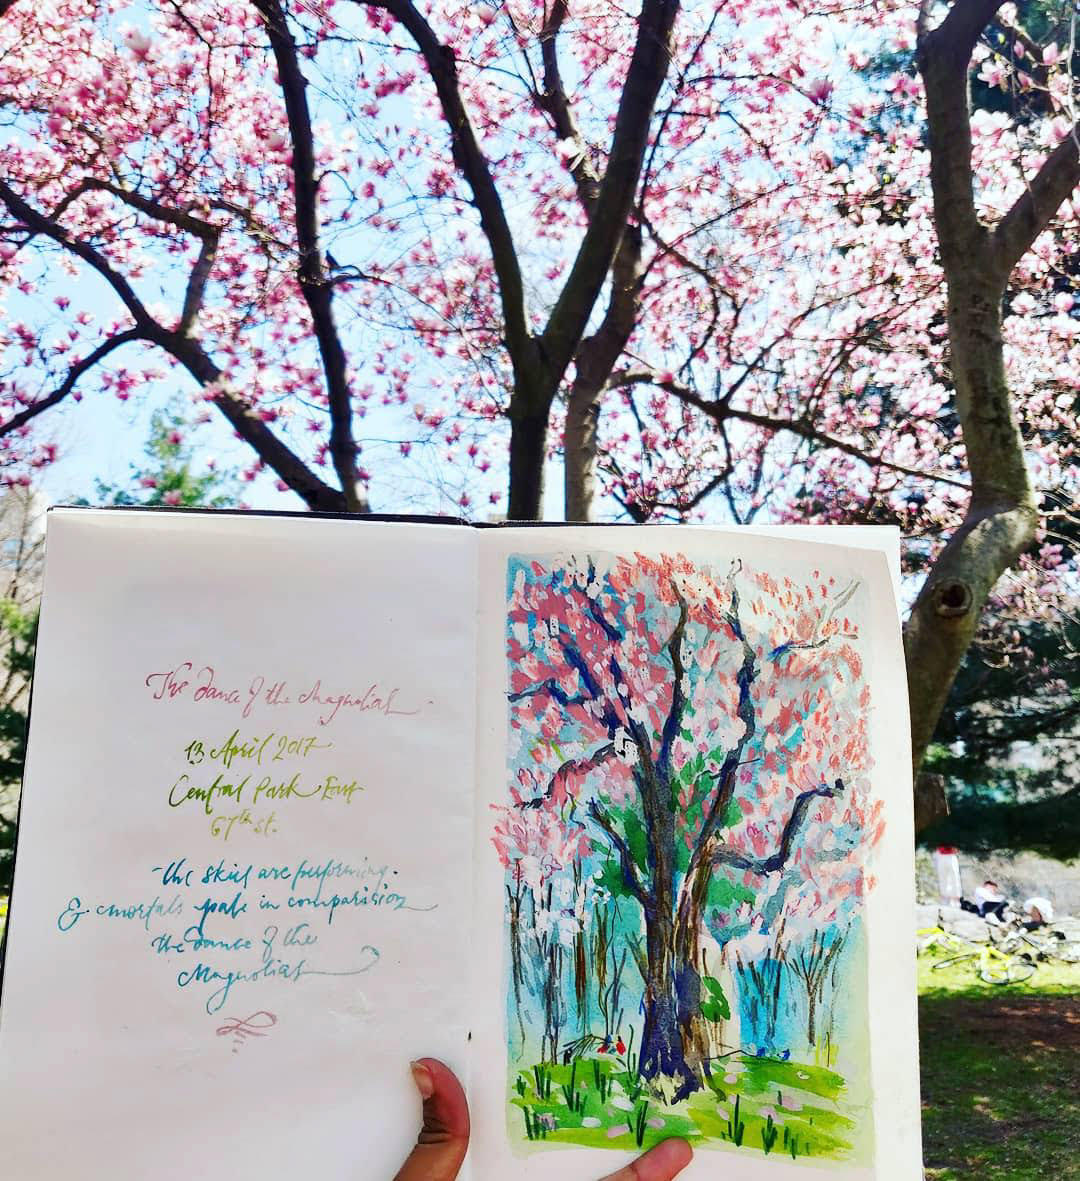 The dance of the Magnolias
13 April 2017
Central Park East
67th st.
- the skies are performing.
& mortals pale in comparision
the dance of the
Magnolias